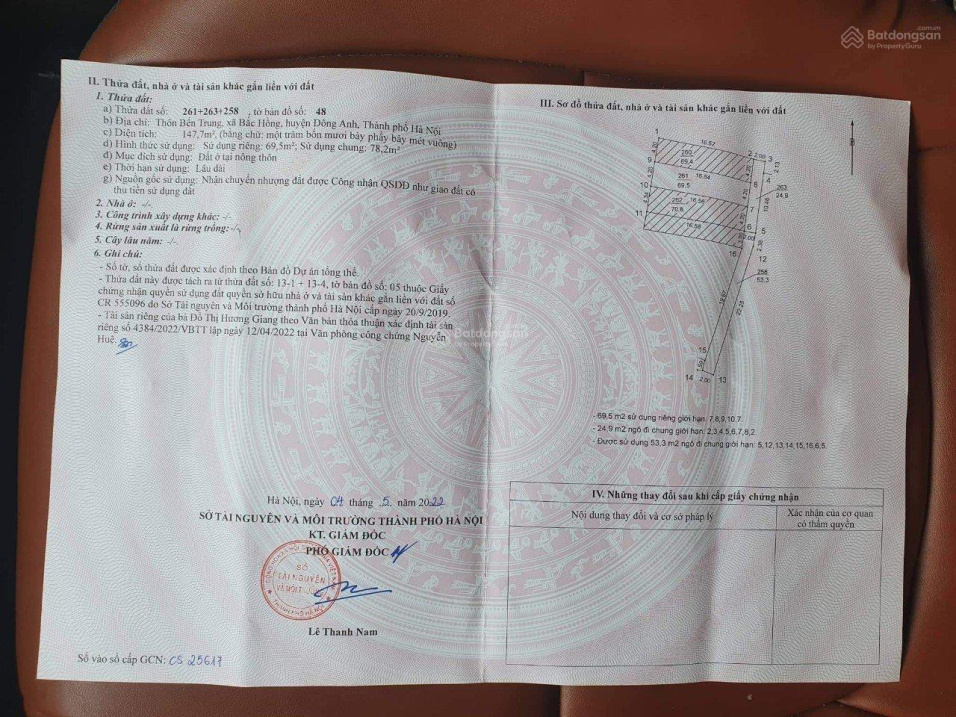 Batdongsan
.com.vn
by PropertyGuru
II. Thửa đất, nhà ở và tài sản khác gắn liền với đất
1. Thửa đất:
a) Thửa đất số: 261+263+258 , tờ bản đồ số: 48
b) Địa chỉ: Thôn Bến Trung, xã Bắc Hồng, huyện Đông Anh, Thành phố Hà Nội
c) Diện tích: 147,7m², (bằng chữ: một trăm bốn mươi bảy phẩy bảy mét vuông)
d) Hình thức sử dụng: Sử dụng riêng: 69,5m²; Sử dụng chung: 78,2m²
đ) Mục đích sử dụng: Đất ở tại nông thôn
e) Thời hạn sử dụng: Lâu dài
g) Nguồn gốc sử dụng: Nhận chuyển nhượng đất được Công nhận QSDĐ như giao đất có
thu tiền sử dụng đất
2. Nhà ở: -/-
3. Công trình xây dựng khác: -/-
4. Rừng sản xuất là rừng trồng: -/-
5. Cây lâu năm: -/-
6. Ghi chú:
- Số tờ, số thửa đất được xác định theo Bản đồ Dự án tổng thể.
- Thửa đất này được tách ra từ thửa đất số: 13-1 + 13-4, tờ bản đồ số: 05 thuộc Giấy
chứng nhận quyền sử dụng đất quyền sở hữu nhà ở và tài sản khác gắn liền với đất số
CR 555096 do Sở Tài nguyên và Môi trường thành phố Hà Nội cấp ngày 20/9/2019.
- Tài sản riêng của bà Đỗ Thị Hương Giang theo Văn bản thỏa thuận xác định tài sản
riêng số 4384/2022/VBTT lập ngày 12/04/2022 tại Văn phòng công chứng Nguyễn
Huệ.
Hà Nội, ngày 04 tháng 5 năm 2022
SỞ TÀI NGUYÊN VÀ MÔI TRƯỜNG THÀNH PHỐ HÀ NỘI
KT. GIÁM ĐỐC
PHÓ GIÁM ĐỐC
SỞ
TÀI NGUYÊN
VÀ MÔI TRƯỜNG
Lê Thanh Nam
Số vào sổ cấp GCN: CS 25617
III. Sơ đồ thửa đất, nhà ở và tài sản khác gắn liền với đất
1
16.57
2 2,00 3
260
69.4
4.20
4.20
2.13
9
16.54
8
4
261
69.5
263
24,9
10
4.20
10.46
262
70,6
16.56
7
11
16.58
6
5
2.00
16
2.38
12
258
53,3
23.25
15
1.50
14 2.00 13
- 69,5 m2 sử dụng riêng giới hạn: 7,8,9,10,7.
- 24,9 m2 ngõ đi chung giới hạn: 2,3,4,5,6,7,8,2
- Được sử dụng 53,3 m2 ngõ đi chung giới hạn: 5,12,13,14,15,16,6,5.
IV. Những thay đổi sau khi cấp giấy chứng nhận
Nội dung thay đổi và cơ sở pháp lý
Xác nhận của cơ quan
có thẩm quyền
Batdongsan
by PropertyGuru